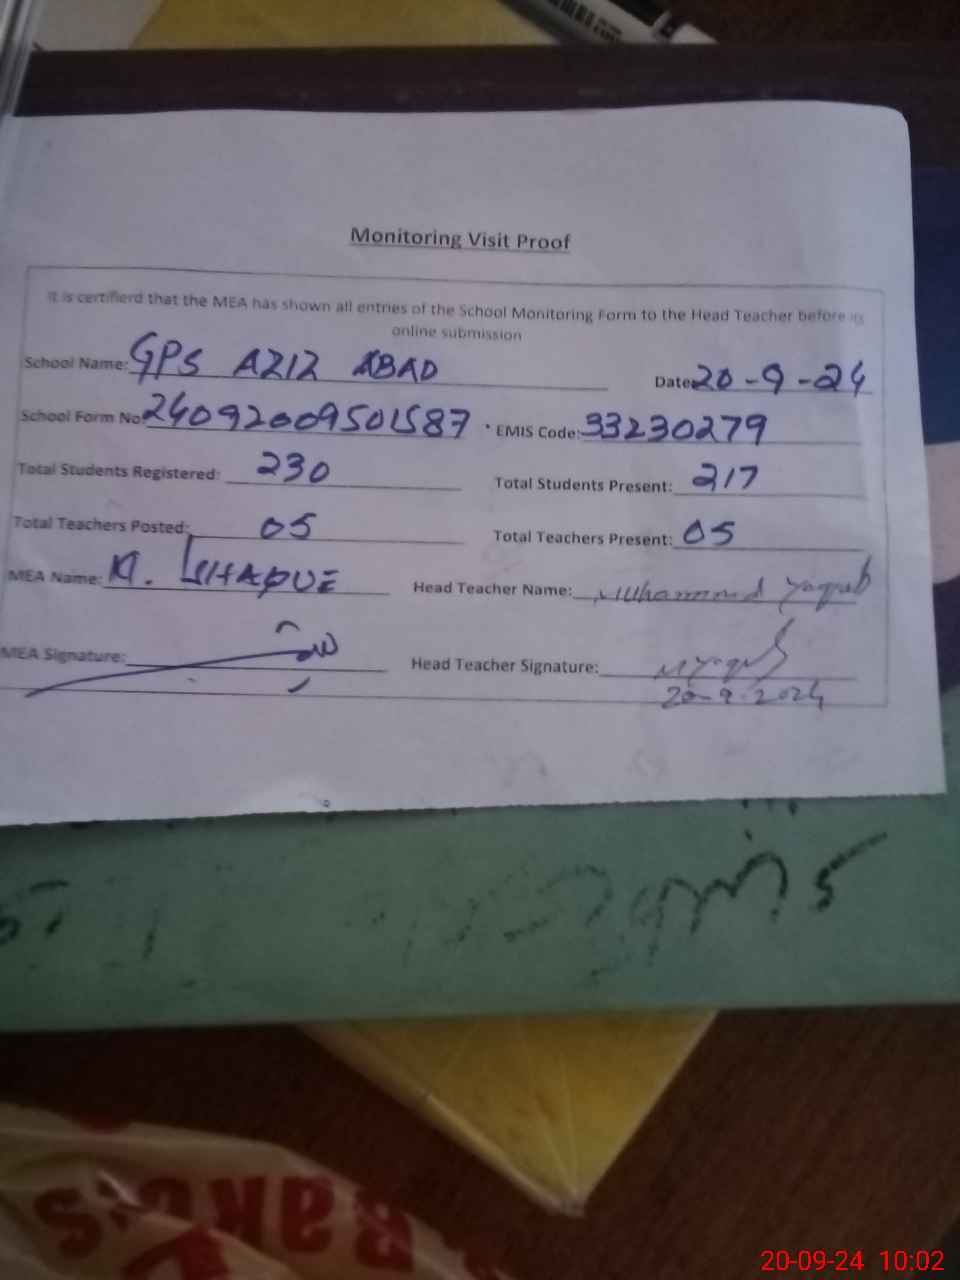 Monitoring Visit Proof
It is certifierd that the MEA has shown all entries of the School Monitoring Form to the Head Teacher before is
online submission
School Name: GPS AZIZ ABAD Date 20-9-24
School Form No 24092009501587 EMIS Code: 33230279
Total Students Registered: 230 Total Students Present: 217
Total Teachers Posted: 05 Total Teachers Present: 05
MEA Name: M. Head Teacher Name: Muhammad Yaqub
MEA Signature: Head Teacher Signature: MYaqub
20-9-2024
20-09-24 10:02